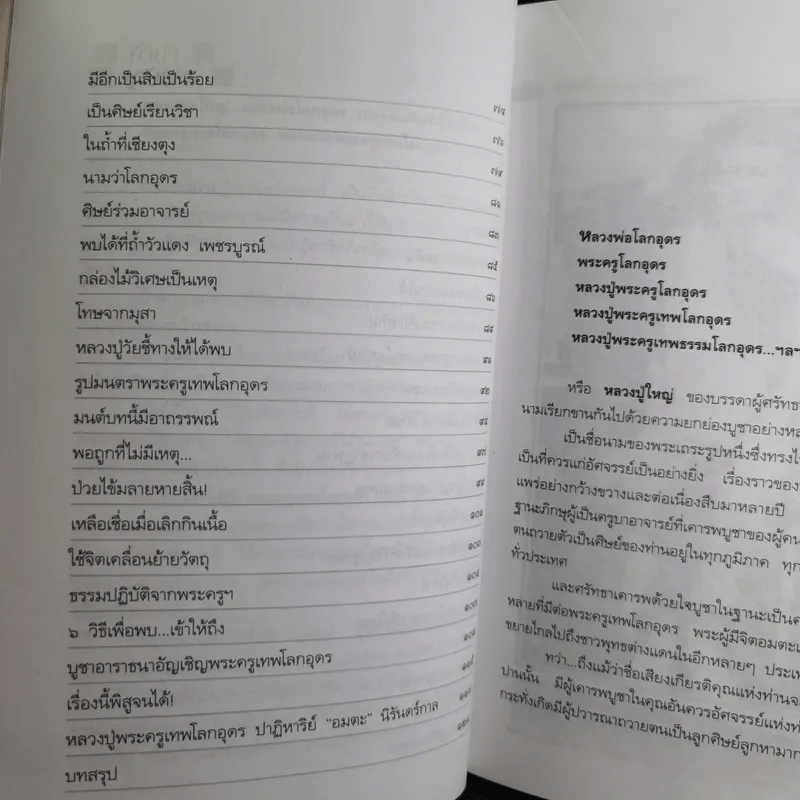 มีอีกเป็นสิบเป็นร้อย ๗๔
เป็นศิษย์เรียนวิชา ๗๖
ในถ้ำที่เชียงตุง
นามว่าโลกอุดร ๘๑
ศิษย์ร่วมอาจารย์ ๘๓
พบได้ที่ถ้ำวัวแดง เพชรบูรณ์ ๘๕
กล่องไม้วิเศษเป็นเหตุ ๘๖
โทษจากมุสา
หลวงปู่วัยชี้ทางให้ได้พบ ๙๑
รูปมนตราพระครูเทพโลกอุดร ๙๒
มนต์บทนี้มีอาถรรพณ์ ๙๔
พอถูกที่ไม่มีเหตุ... ๙๗
ป่วยไข้มลายหายสิ้น!
เหลือเชื่อเมื่อเลิกกินเนื้อ ๑๐๑
ใช้จิตเคลื่อนย้ายวัตถุ ๑๐๓
ธรรมปฏิบัติจากพระครูฯ
๖ วิธีเพื่อพบ...เข้าให้ถึง ๑๐๗
บูชาอาราธนาอัญเชิญพระครูเทพโลกอุดร
เรื่องนี้พิสูจน์ได้!
หลวงปู่พระครูเทพโลกอุดร ปาฏิหาริย์ “อมตะ” นิรันดร์กาล
บทสรุป
หลวงพ่อโลกอุดร
พระครูโลกอุดร
หลวงปู่พระครูโลกอุดร
หลวงปู่พระครูเทพโลกอุดร
หลวงปู่พระครูเทพธรรมโลกอุดร...ฯลฯ
หรือ หลวงปู่ใหญ่ ของบรรดาผู้ศรัทธา
นามเรียกขานกันไปด้วยความยกย่องบูชาอย่าง
เป็นชื่อนามของพระเถระรูปหนึ่งซึ่งทรง
เป็นที่ควรแก่อัศจรรย์เป็นอย่างยิ่ง เรื่องราวของ
แพร่อย่างกว้างขวางและต่อเนื่องสืบมาหลายปี
ฐานะภิกษุผู้เป็นครูบาอาจารย์ที่เคารพบูชาของผู้คน
ตนถวายตัวเป็นศิษย์ของท่านอยู่ในทุกภูมิภาค
ทั่วประเทศ
และศรัทธาเคารพด้วยใจบูชาในฐานะเป็น
หลายที่มีต่อพระครูเทพโลกอุดร พระผู้มีจิตอมตะ
ขยายไกลไปถึงชาวพุทธต่างแดนในอีกหลายๆ ประเทศ
ทว่า...ถึงแม้ว่าชื่อเสียงเกียรติคุณแห่งท่าน
ปานนั้น มีผู้เคารพบูชาในคุณอันควรอัศจรรย์แห่ง
กระทั่งเกิดมีผู้ปวารณาถวายตนเป็นลูกศิษย์ลูกหามาก